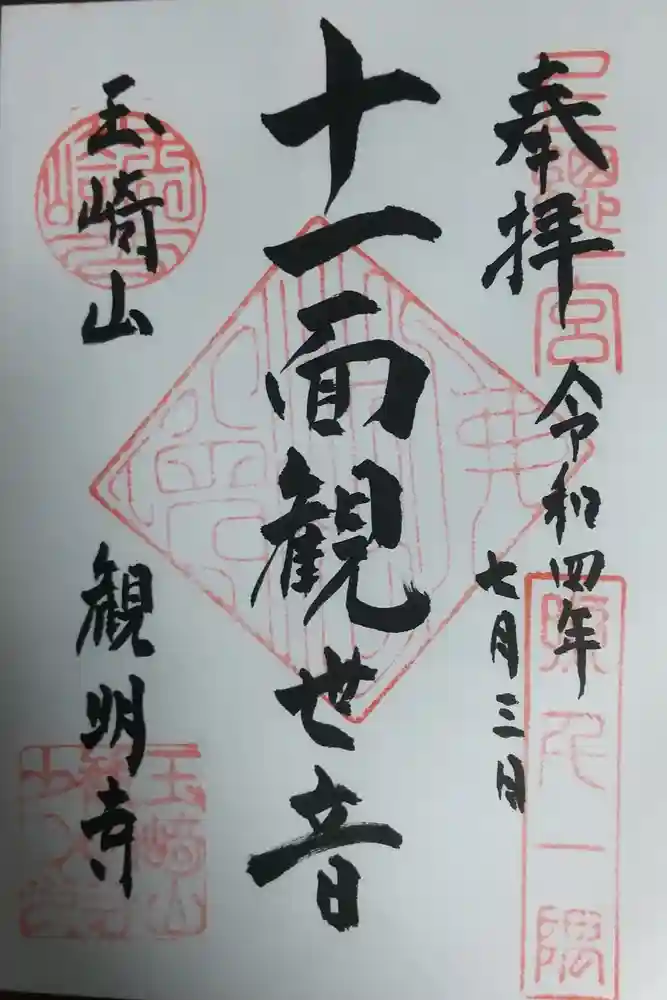 奉拝
令和四年
七月三日
十一面観世音
玉崎山
観明寺
玉崎山
一隅